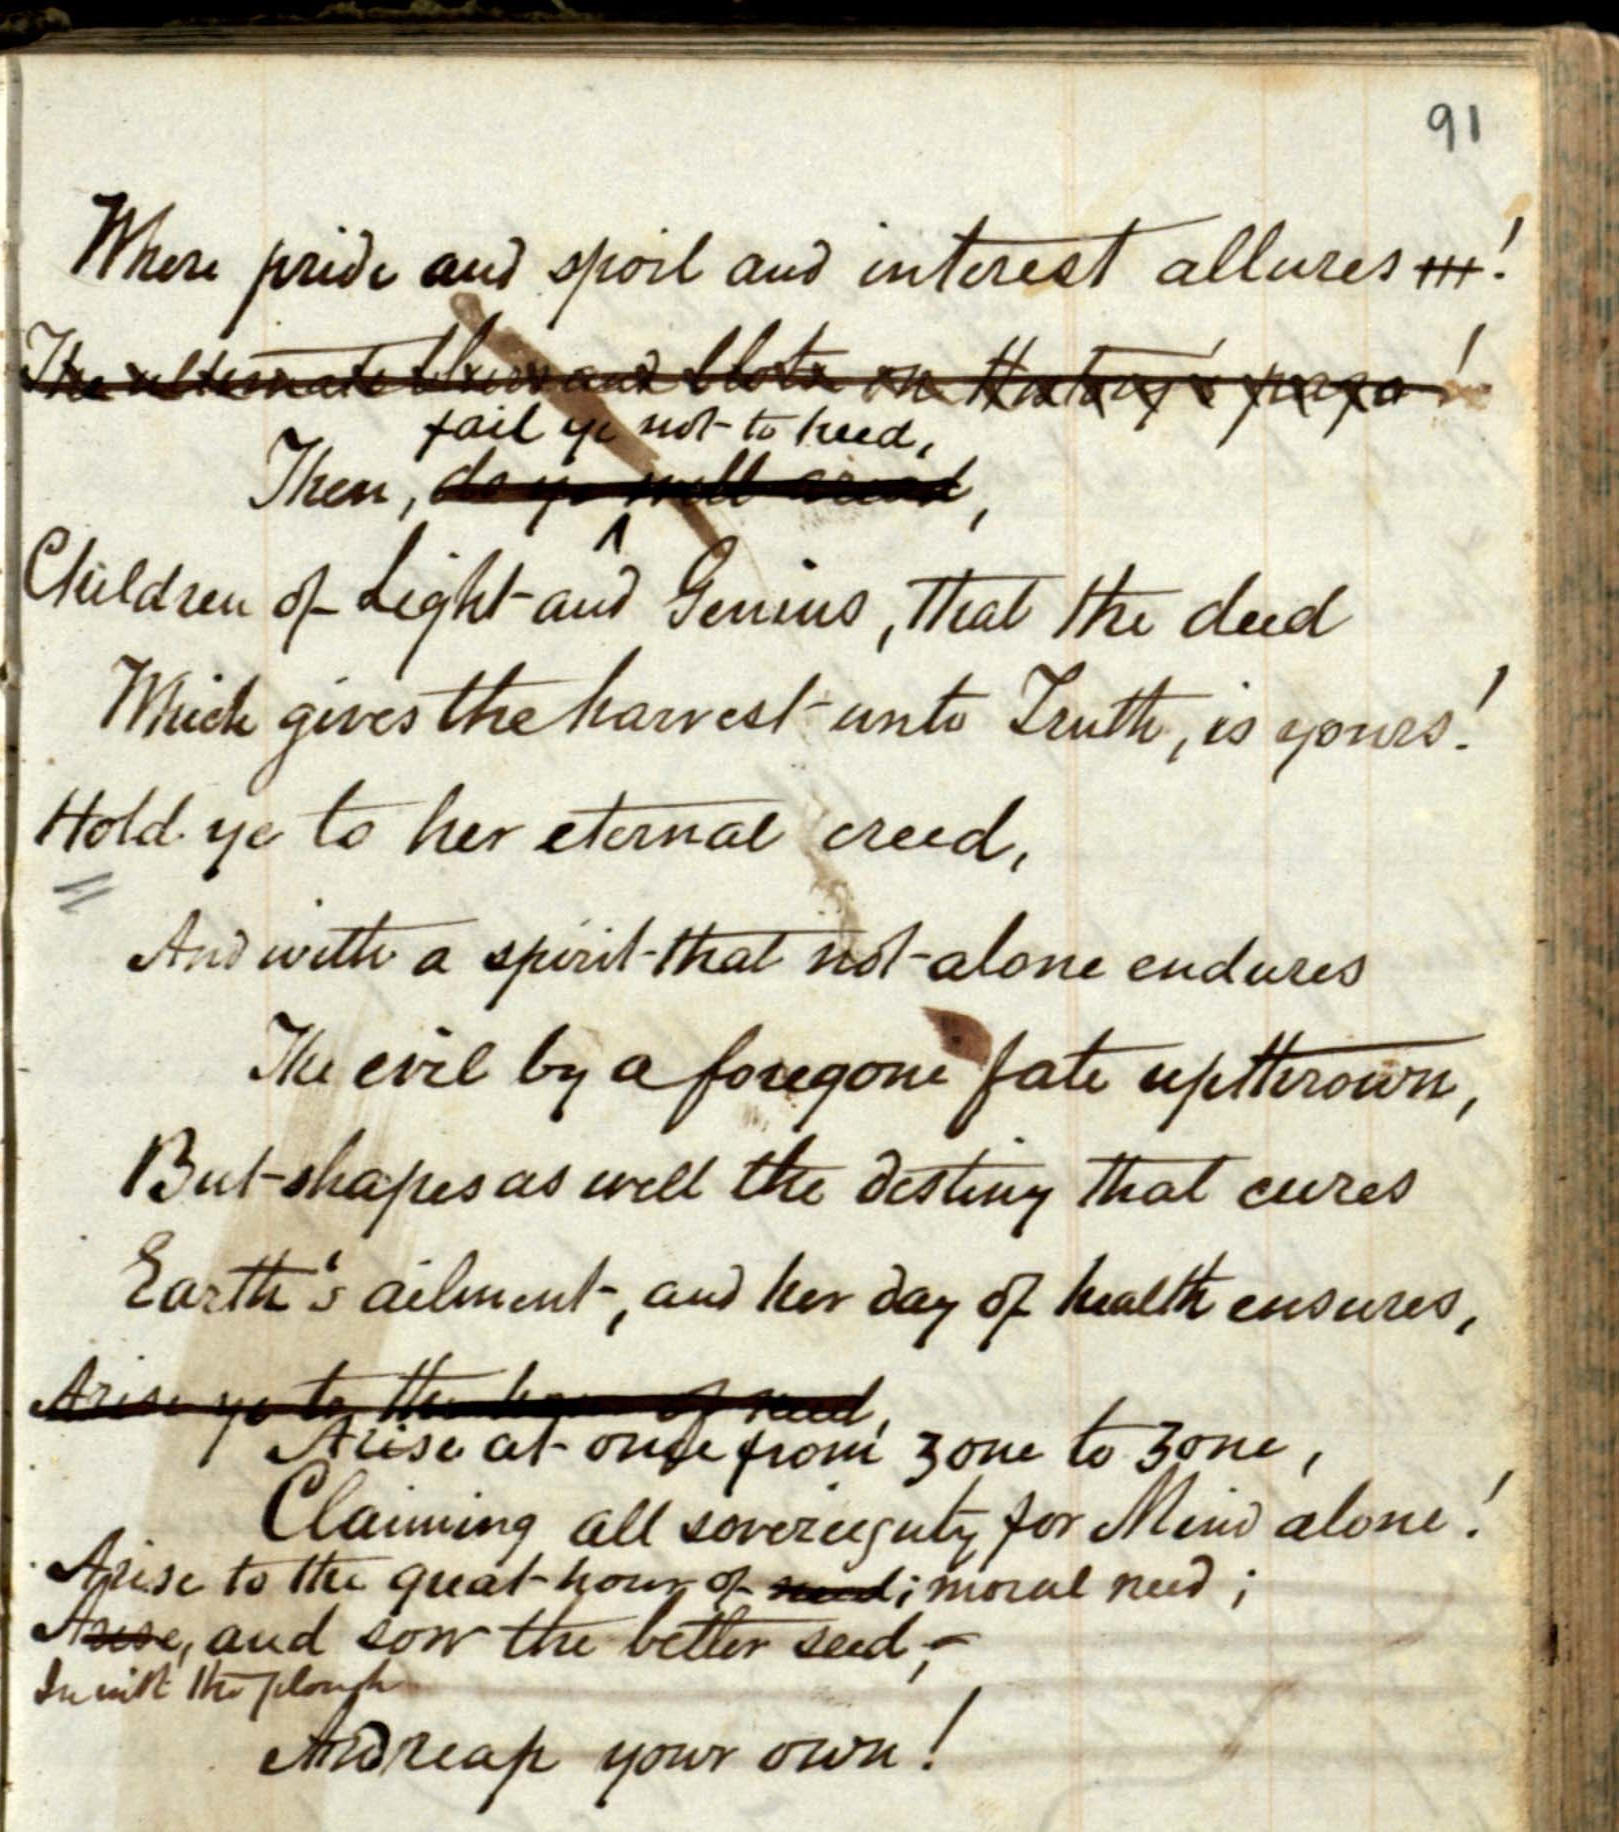 91
Where pride and spoil and interest allures !
The alternate blurs and blots on History's page !
fail ye not to heed,
Then, do ye well aread,
Children of Light and Genius, that the deed
Which gives the harvest unto Truth, is yours!
Hold ye to her eternal creed,
And with a spirit that not alone endures
The evil by a foregone fate upthrown,
But shapes as well the destiny that cures
Earth's ailment, and her day of health ensures,
Arise ye to the hour of need,
Arise at once from zone to zone,
Claiming all sovereignty for Mind alone!
Arise to the great hour of need; moral need;
Arise, and sow the better seed,—
In with the plough
And reap your own!